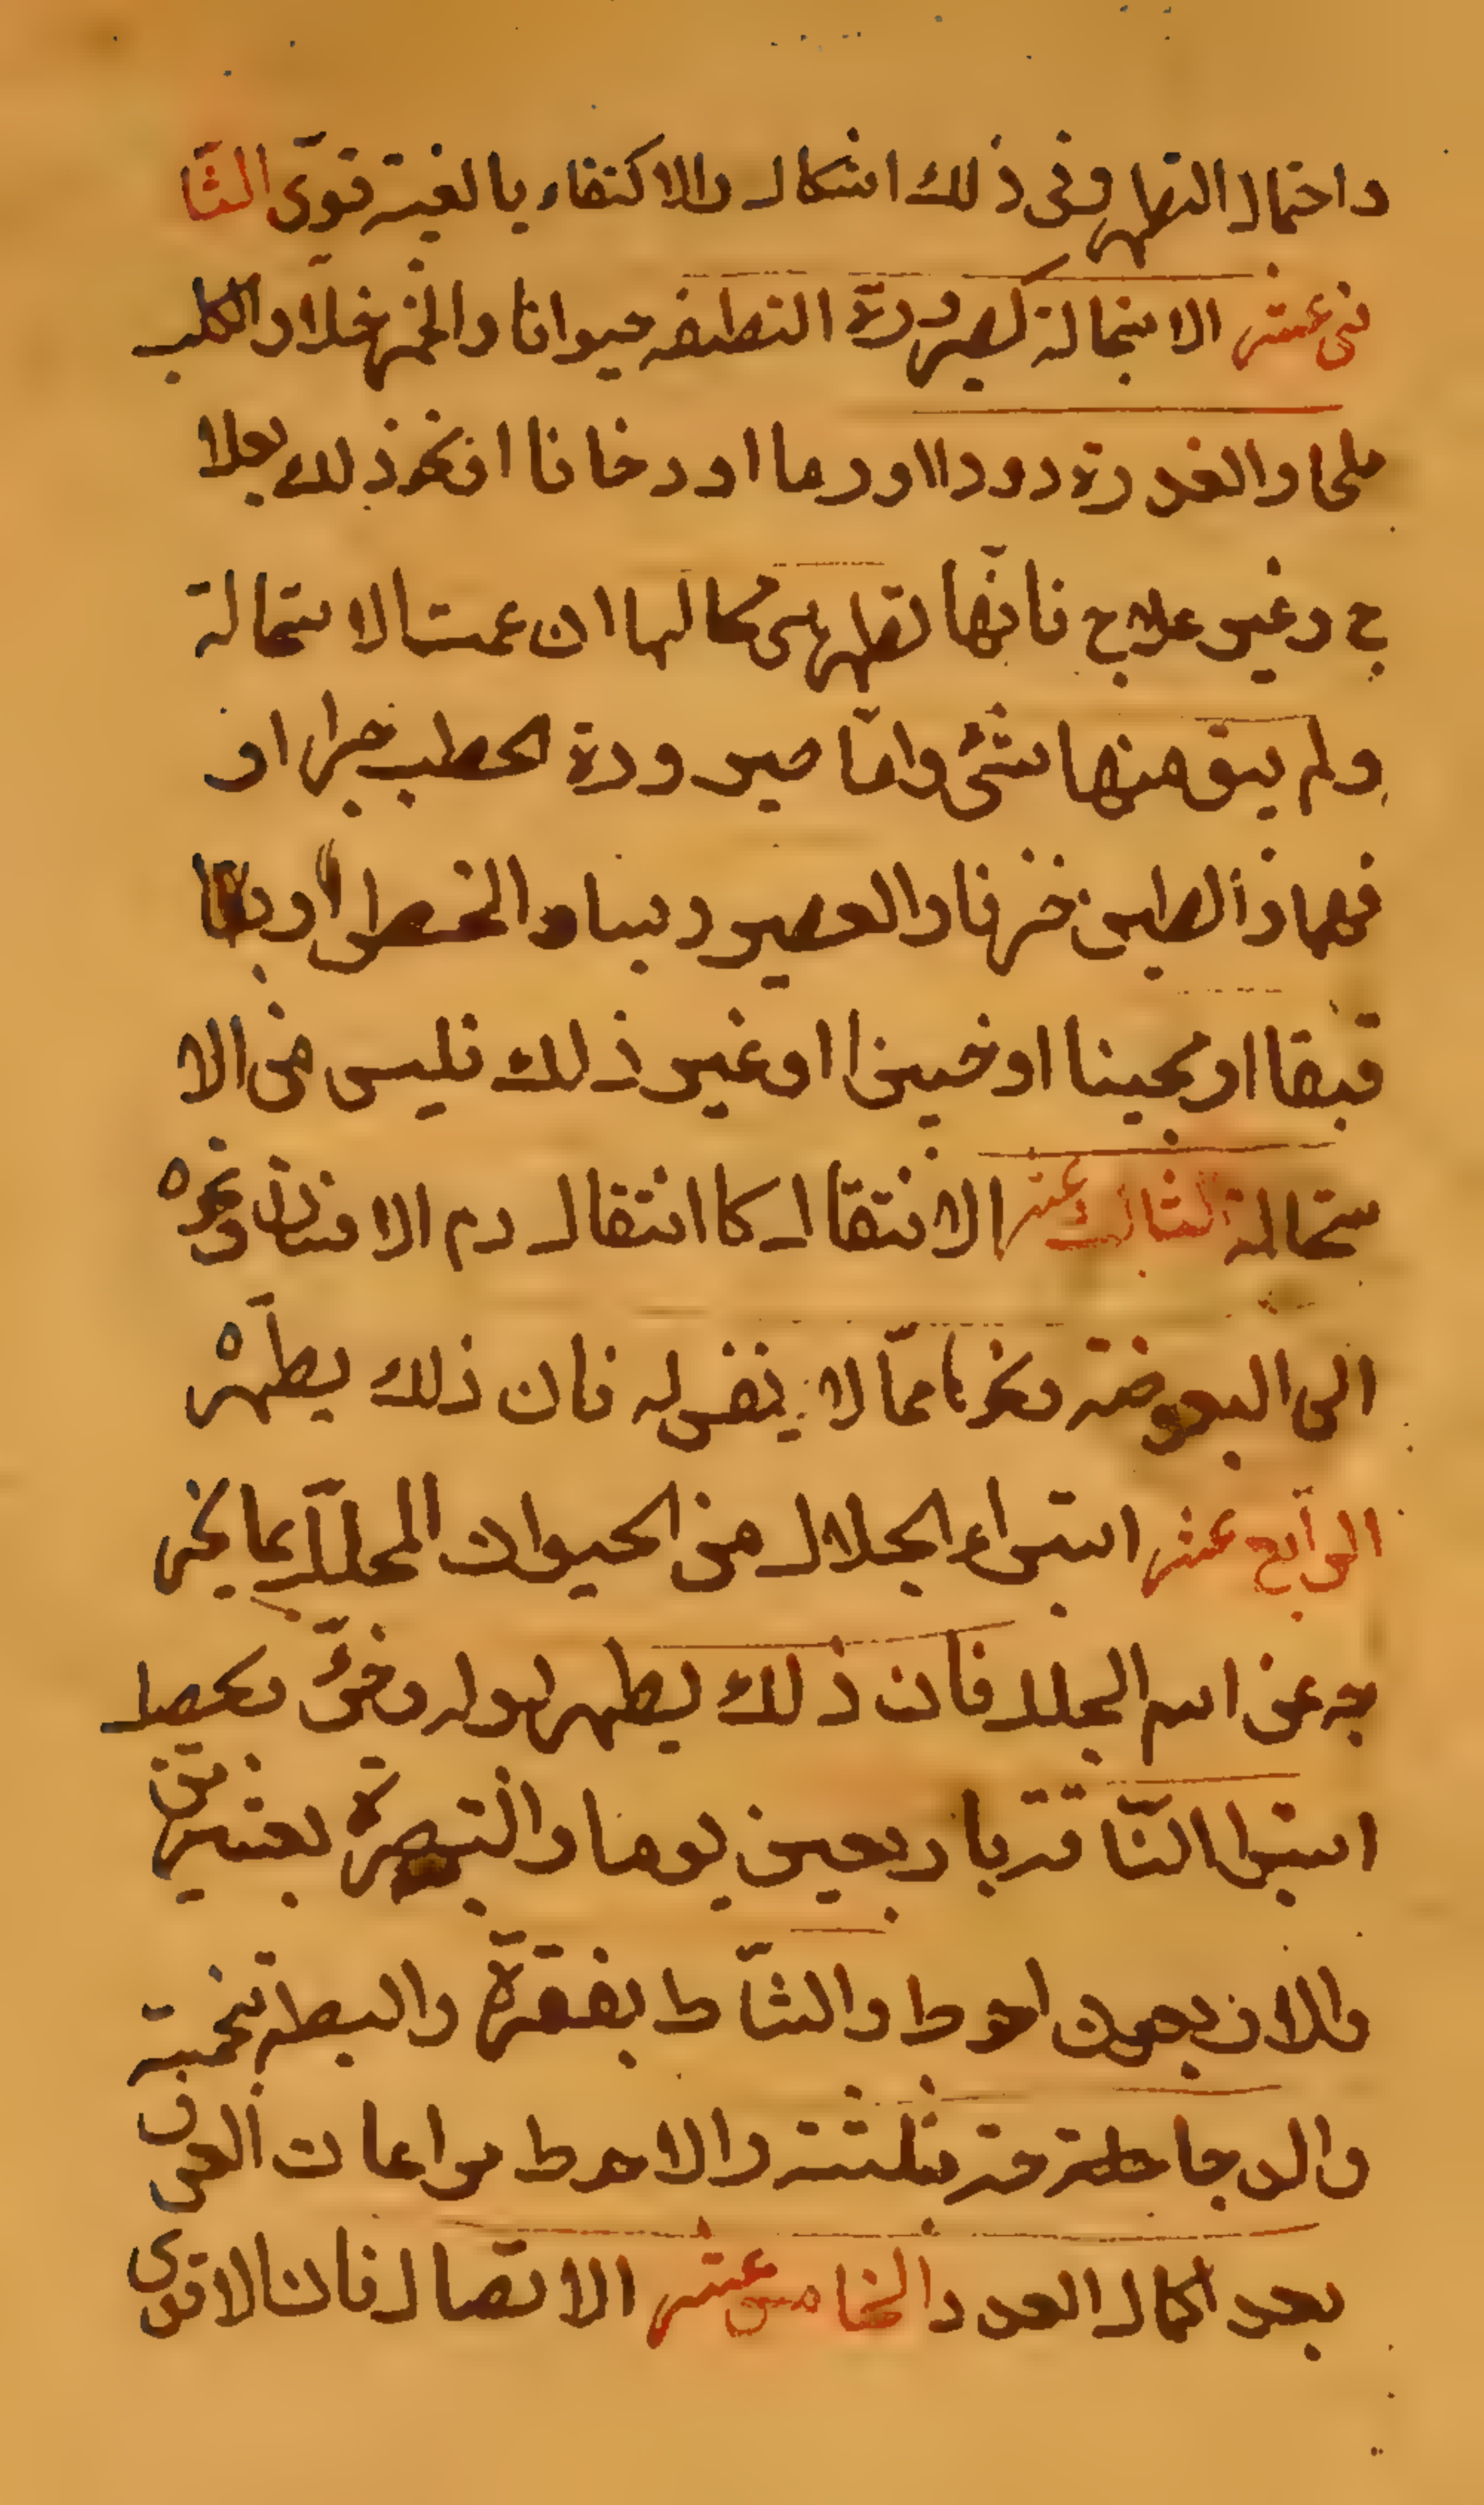 واحتمال التطهر وفى ذلك اشكال والاكتفاء بالغيبة قوىّ الثا
نى عشر الاستحالة كصيرورة النطفة حيوانا والخمر خلّا والكلب
ملحا والعذرة دودا اورمادا او دخانا او نحو ذلك بعلا
ج وغير علاج فانّها تطهر محالها ان عمت الاستحالة
ولم يبق منها شئ وامّا صيرورة الحطب جمرا او
فحما والطين خزفا والعصير دبسا والحنطة
قيقا او عجينا او خبزا او غير ذلك فليس من الا
ستحالة الثالث عشر الانتقال كانتقال دم الانسان ونحوه
الى البعوضة ونحوها ممّا لا نفس له فان ذلك يطهّره
الرابع عشر استبراء الجلال من الحيوان المحلّل بما يخر
جه عن اسم الجلل فان ذلك يطهر بوله وخرئه ويحصل
استبراء النّاقة باربعين يوما والبقرة بعشرين
والاربعون احوط والشاة بعشرة والبطة بخمسة
والدجاجة بثلثة والاحوط مراعات العرف
بعد اكمال العدد الخامس عشر الاتصال فان الاقوى